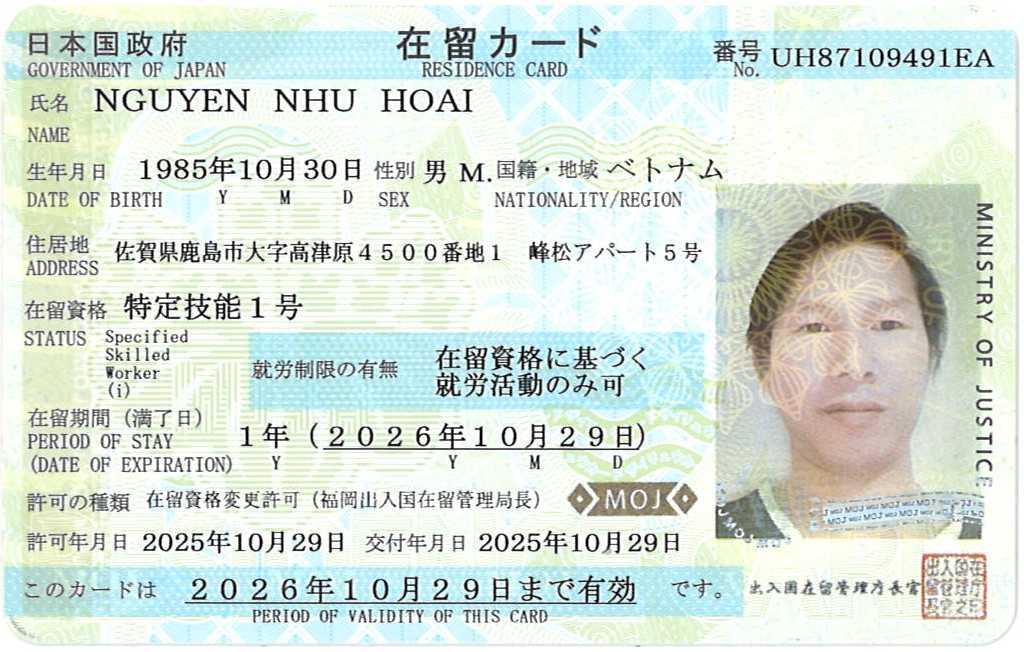 日本国政府 在留カード 番号 UH87109491EA
GOVERNMENT OF JAPAN RESIDENCE CARD No.
氏名 NGUYEN NHU HOAI
NAME
生年月日 1985年10月30日 性別 男 M. 国籍・地域 ベトナム
DATE OF BIRTH Y M D SEX NATIONALITY/REGION
住居地 佐賀県鹿島市大字高津原4500番地1 峰松アパート5号
ADDRESS
在留資格 特定技能1号
STATUS Specified
Skilled
Worker
(i)
就労制限の有無 在留資格に基づく
就労活動のみ可
在留期間(満了日)
PERIOD OF STAY 1年(2026年10月29日)
(DATE OF EXPIRATION) Y Y M D
許可の種類 在留資格変更許可(福岡出入国在留管理局長) MOJ
許可年月日 2025年10月29日 交付年月日 2025年10月29日
このカードは 2026年10月29日まで有効 です。
PERIOD OF VALIDITY OF THIS CARD
MINISTRY OF JUSTICE
出入国在留管理庁長官